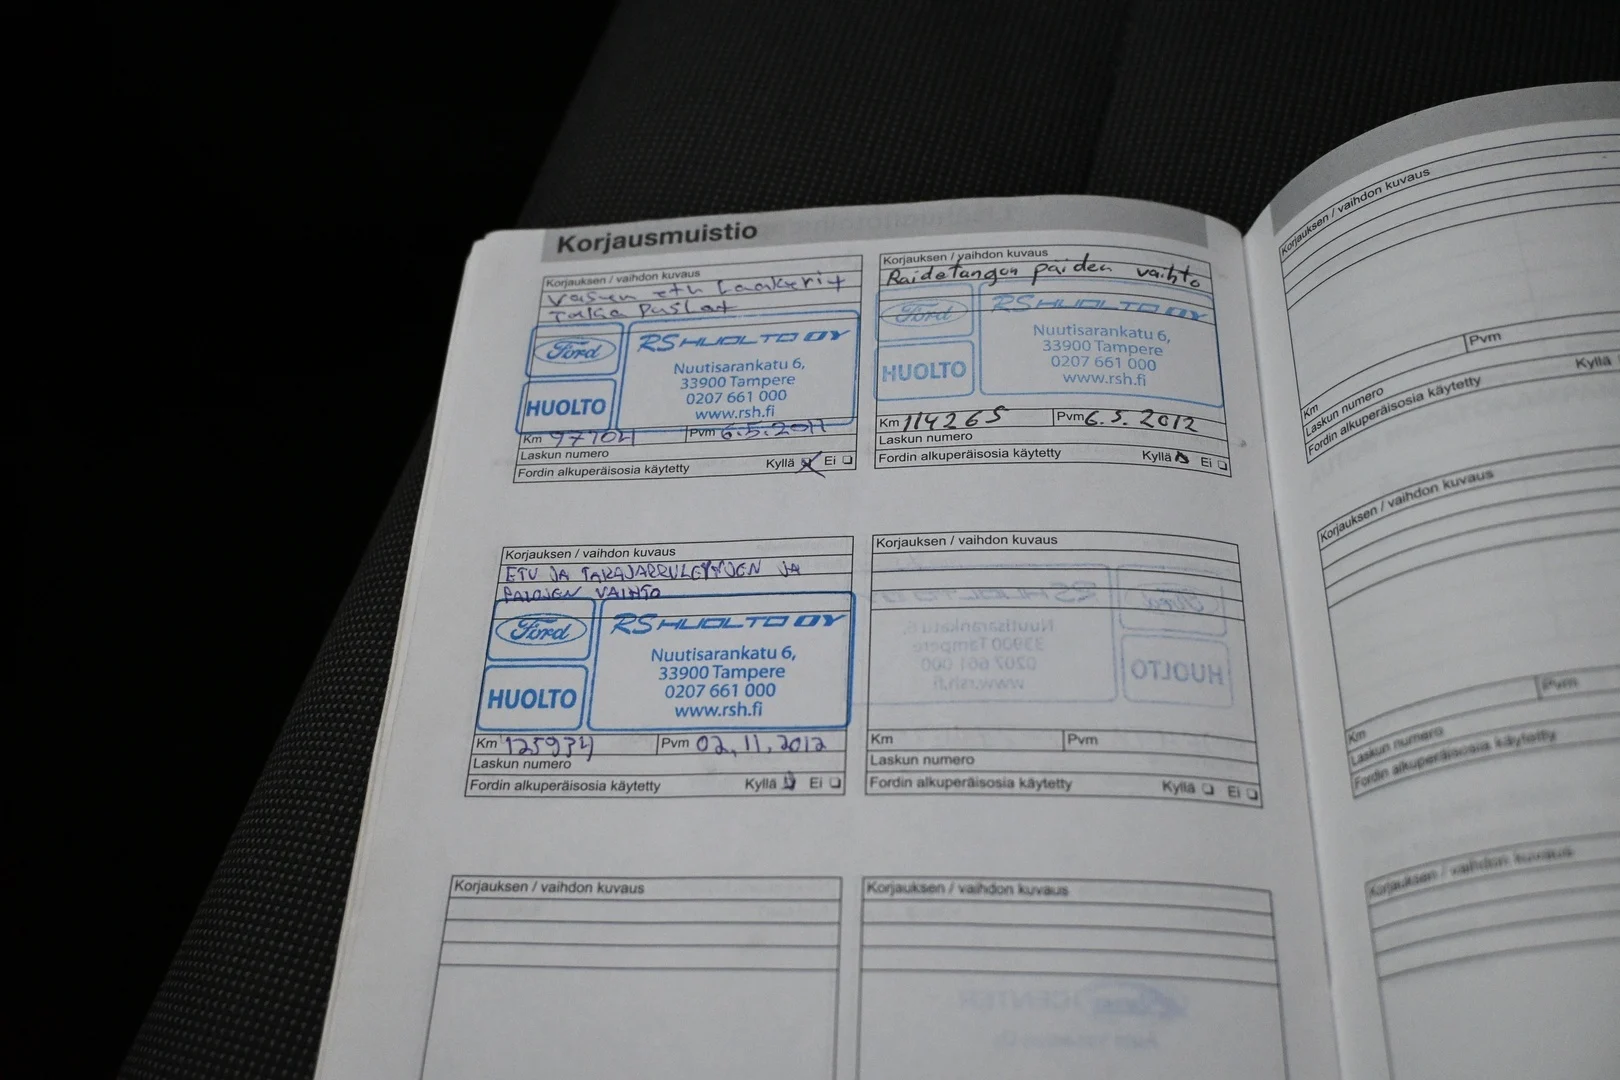 Korjausmuistio
Korjauksen / vaihdon kuvaus
Vasen etu Laakerit
Taka Puslat
Ford
HUOLTO
RS HUOLTO OY
Nuutisarankatu 6,
33900 Tampere
0207 661 000
www.rsh.fi
Km 97704 Pvm 6.5.2011
Laskun numero
Fordin alkuperäisosia käytetty Kyllä Ei
Korjauksen / vaihdon kuvaus
Raidetangon päiden vaihto
Ford
HUOLTO
RS HUOLTO OY
Nuutisarankatu 6,
33900 Tampere
0207 661 000
www.rsh.fi
Km 114265 Pvm 6.5.2012
Laskun numero
Fordin alkuperäisosia käytetty Kyllä Ei
Korjauksen / vaihdon kuvaus
ETU JA TAKAJARRULEVYJEN JA
PALOJEN VAIHTO
Ford
HUOLTO
RS HUOLTO OY
Nuutisarankatu 6,
33900 Tampere
0207 661 000
www.rsh.fi
Km 125934 Pvm 02.11.2012
Laskun numero
Fordin alkuperäisosia käytetty Kyllä Ei
Korjauksen / vaihdon kuvaus
Km Pvm
Laskun numero
Fordin alkuperäisosia käytetty Kyllä Ei
Korjauksen / vaihdon kuvaus
Korjauksen / vaihdon kuvaus
Korjauksen / vaihdon kuvaus
Km Pvm
Laskun numero
Fordin alkuperäisosia käytetty Kyllä
Korjauksen / vaihdon kuvaus
Km Pvm
Laskun numero
Fordin alkuperäisosia käytetty
Korjauksen / vaihdon kuvaus